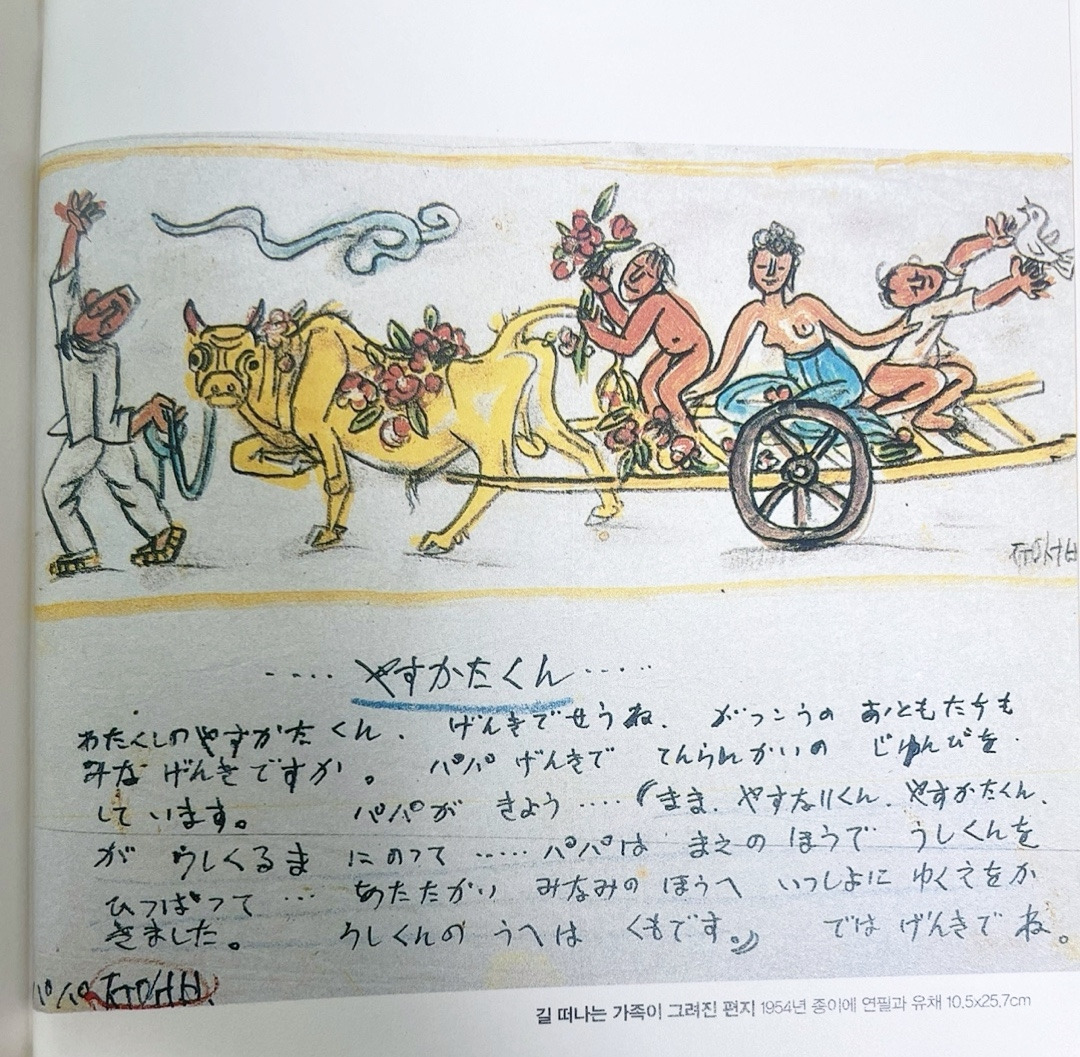 ㅈㅜㅇㅅㅓㅂ
‥‥ やすかたくん ‥‥
わたくしの やすかた くん. げんきでせうね. がつこうの おともたちも
みな げんきですか。 パパ げんきで てんらんかいの じゆんびを.
しています。 パパが きよう ‥‥ (まま. やすなりくん. やすかたくん.
が うしくるま にのつて ‥‥‥ パパは まえの ほうで うしくんを
ひつぱつて … あたたかい みなみの ほうへ いつしよに ゆくえをか
きました。 うしくんの うへは くもです。) では げんきで ね。
パパ ㅈㅜㅇㅅㅓㅂ.
길 떠나는 가족이 그려진 편지 1954년 종이에 연필과 유채 10.5x25.7cm